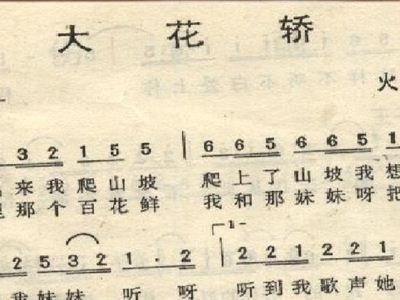 大花轿
火
3 2 1 5 5 | 6 6 5 6 6 5 1
来我爬山坡 爬上了山坡我想
那个百花鲜 我和那妹妹呀把
1-
2 5 3 2 1 · 2 2 2 2 1 2 1 2 1
我妹妹 听呀 听到我歌声她